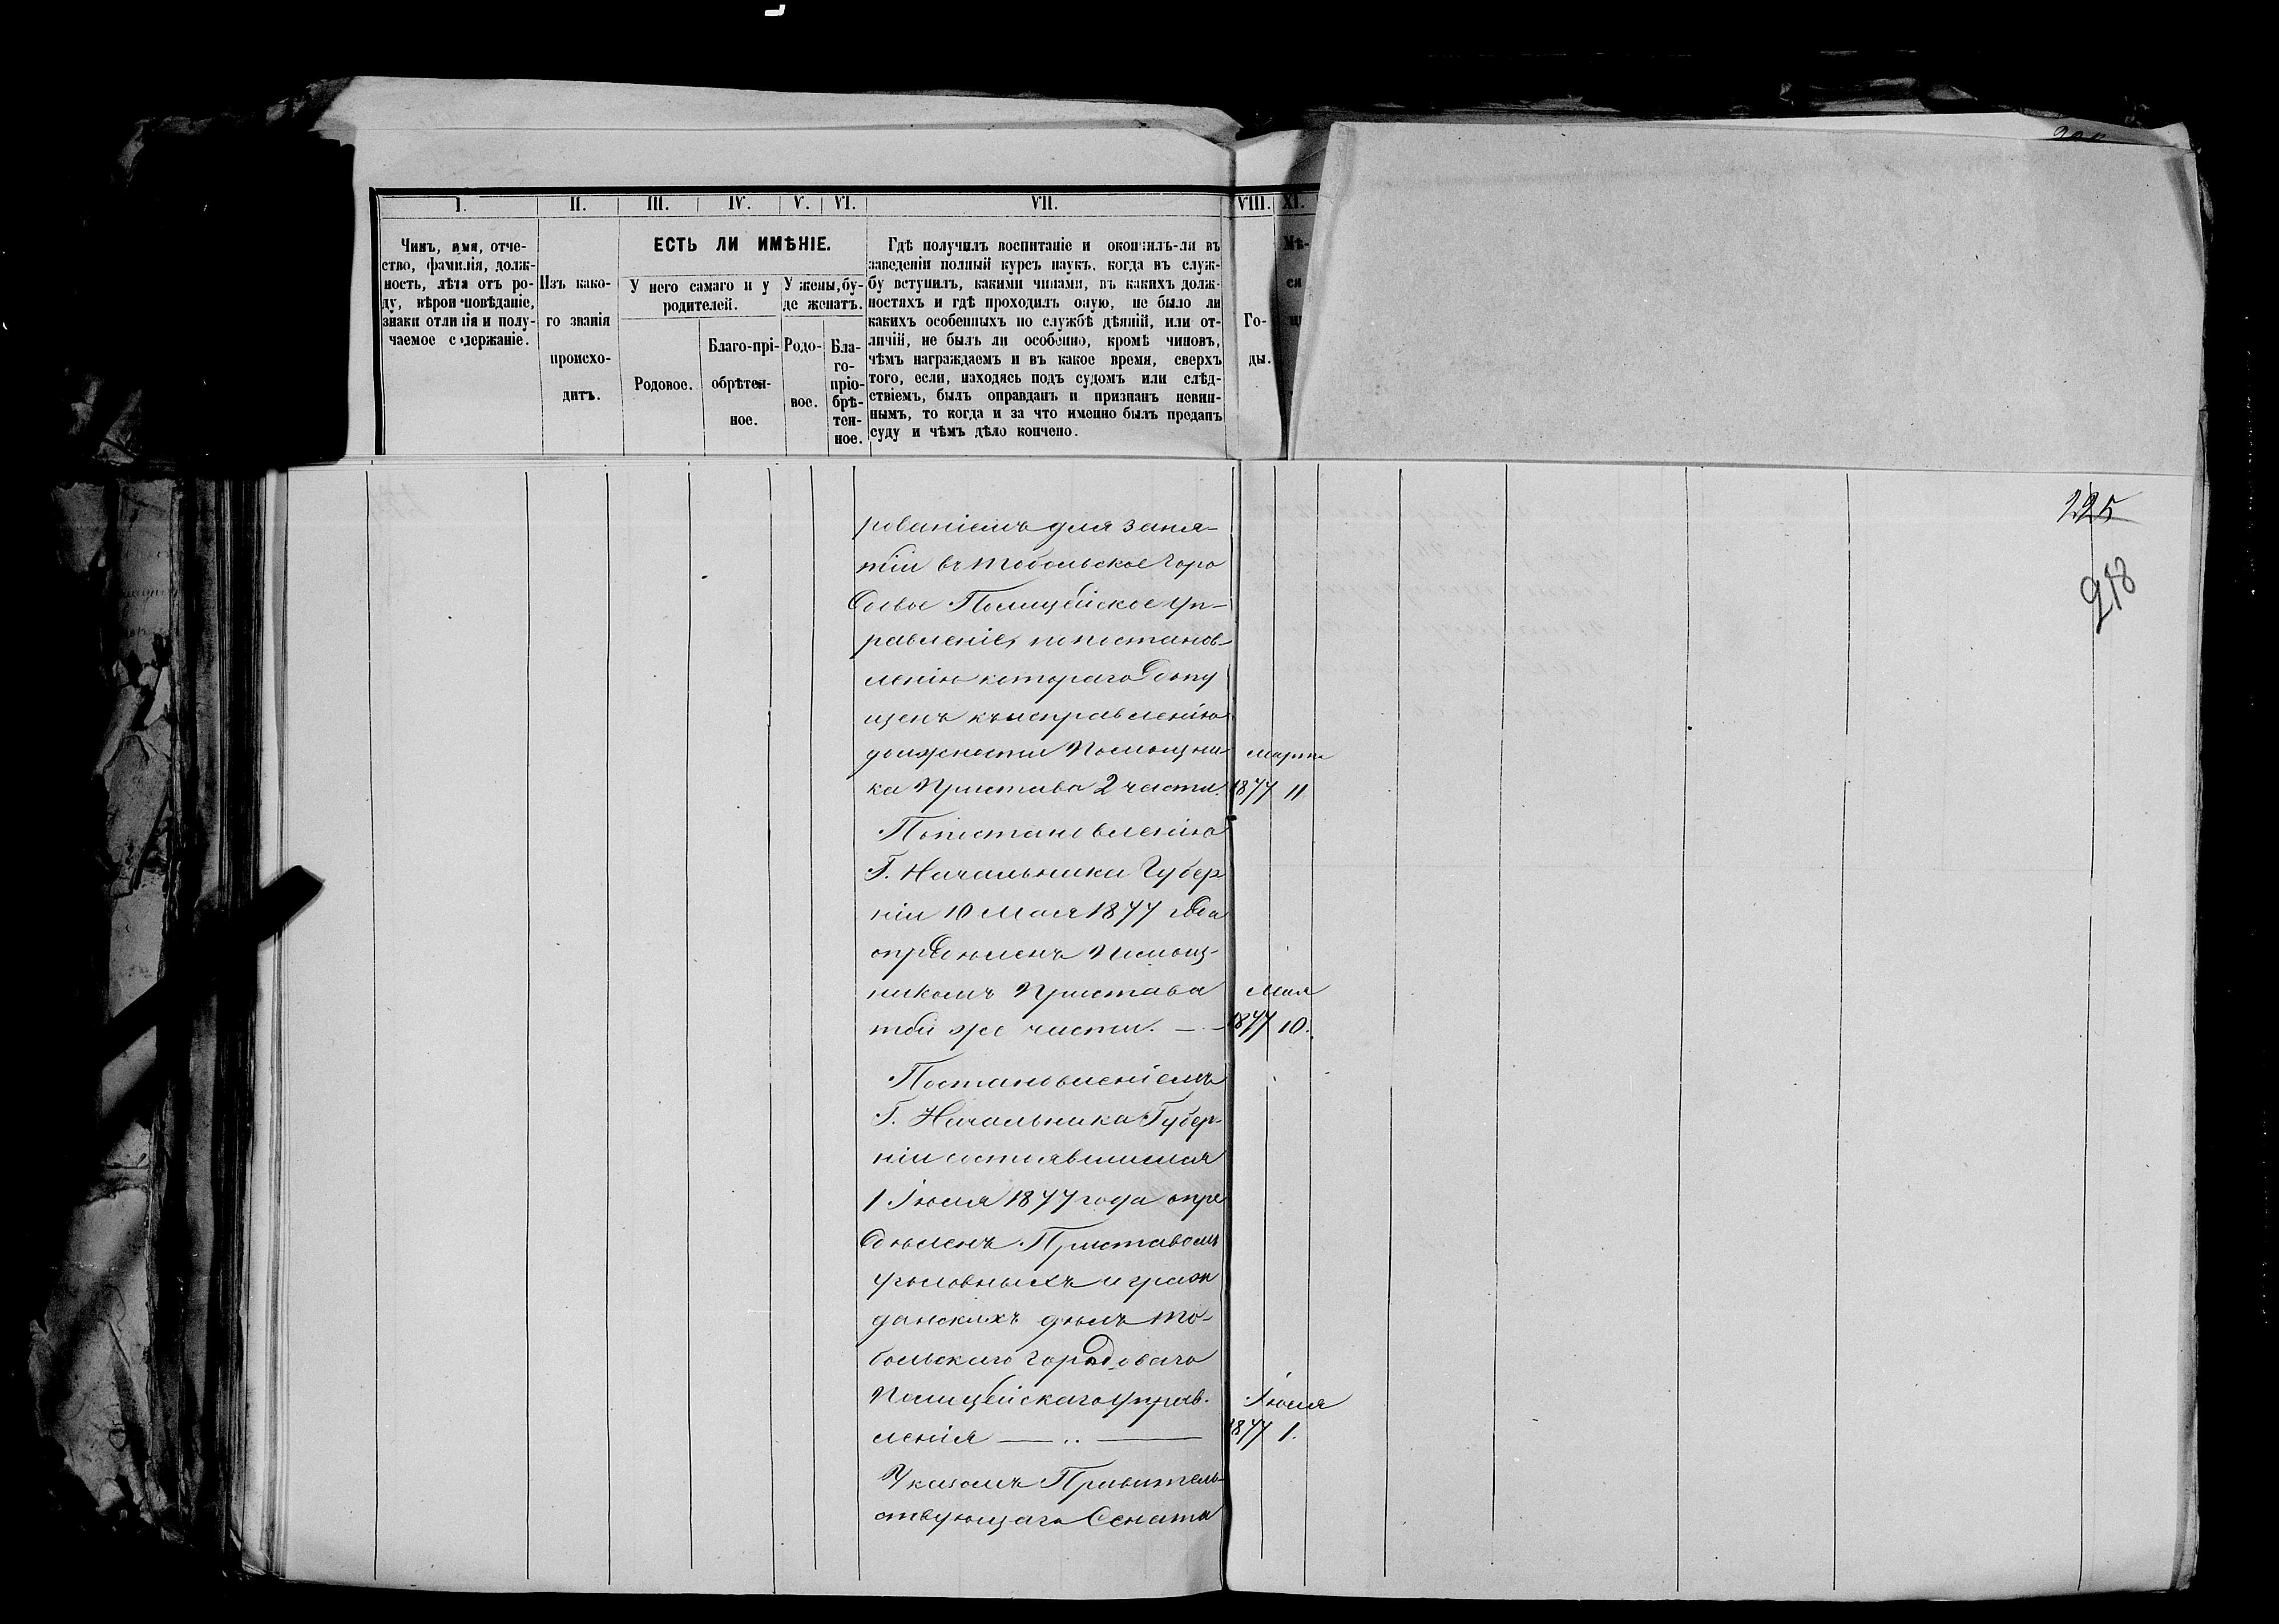 I. II. III. IV. V. VI. VII. VIII. XI.
Чинъ, имя, отче-
ство, фамилія, долж-
ность, лѣта отъ ро-
ду, вѣроисповѣданіе,
знаки отличія и полу-
чаемое содержаніе.
Изъ како-
го званія
происхо-
дитъ.
ЕСТЬ ЛИ ИМѢНІЕ.
У него самаго и у
родителей.
Родовое.
Благо-прі-
обрѣтен-
ное.
У жены, бу-
де женатъ.
Родо-
вое.
Бла-
го-
пріо-
брѣ-
тен-
ное.
Гдѣ получилъ воспитаніе и окончилъ-ли въ
заведеніи полный курсъ наукъ, когда въ служ-
бу вступилъ, какими чинами, въ какихъ долж-
ностяхъ и гдѣ проходилъ оную, не было ли
какихъ особенныхъ по службѣ дѣяній, или от-
личій, не былъ ли особенно, кромѣ чиновъ,
чѣмъ награждаемъ и въ какое время, сверхъ
того, если, находясь подъ судомъ или слѣд-
ствіемъ, былъ оправданъ и признанъ невин-
нымъ, то когда и за что именно былъ преданъ
суду и чѣмъ дѣло кончено.
Го-
ды.
Мѣ-
ся
ц
225
218
рованіемъ для заня-
тій въ Тобольское Горо
довое Полицейское Уп-
равленіе, по постанов-
ленію котораго допу
щенъ къ исправленію
должности Помощни-
ка Пристава 2 части.
Марта
1877 11
По постановленію
Г. Начальника Губер
ніи 10 Мая 1877 года
опредѣленъ Помощ-
никомъ Пристава
той же части. —
Мая
1877 10.
Постановленіемъ
Г. Начальника Губер-
ніи состоявшимся
1 Іюля 1877 года опре
дѣленъ Приставомъ
уголовныхъ и граж
данскихъ дѣлъ То-
больскаго Городоваго
Полицейскаго Управ-
ленія — .. —
Іюля
1877 1.
Указомъ Правитель-
ствующаго Сената